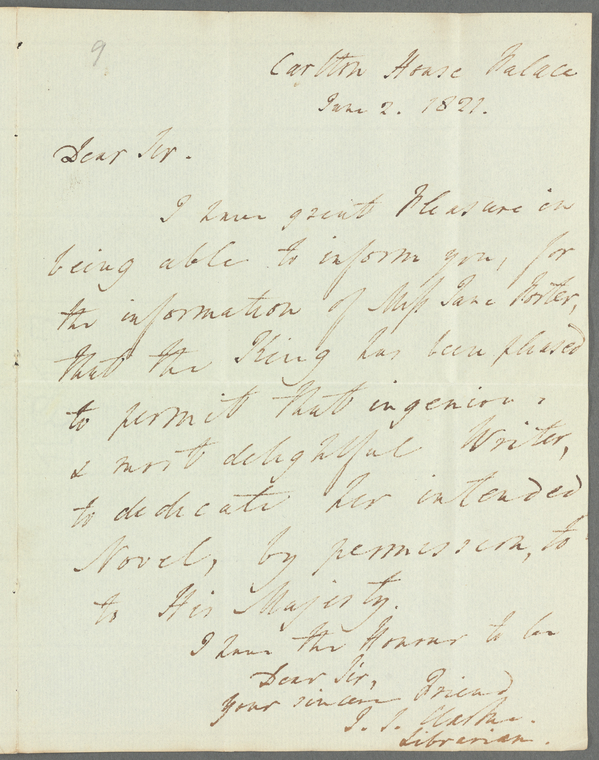 9
Carlton House Palace
June 2. 1821.
Dear Sir.
I have great Pleasure in
being able to inform you, for
the information of Miss Jane Porter,
that the King has been pleased
to permit that ingenious
& most delightful Writer,
to dedicate her intended
Novel, by permission, to
to His Majesty.
I have the Honour to be
Dear Sir,
your sincere Friend
J. S. Clarke.
Librarian.